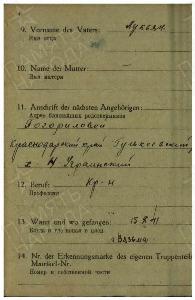 9. Vorname des Vaters: Лукьян
Имя отца
10. Name der Mutter:
Имя матери
11. Anschrift der nächsten Angehörigen:
Адрес ближайших родственников
Погориловой
Краснодарский край Гулькевский,
х. Н Украинский
12. Beruf: Кр-н
Профессия
13. Wann und wo gefangen: 15.8.41
Когда и где попал в плен
14. Nr. der Erkennungsmarke des eigenen Truppenteils
Номер в собственной части